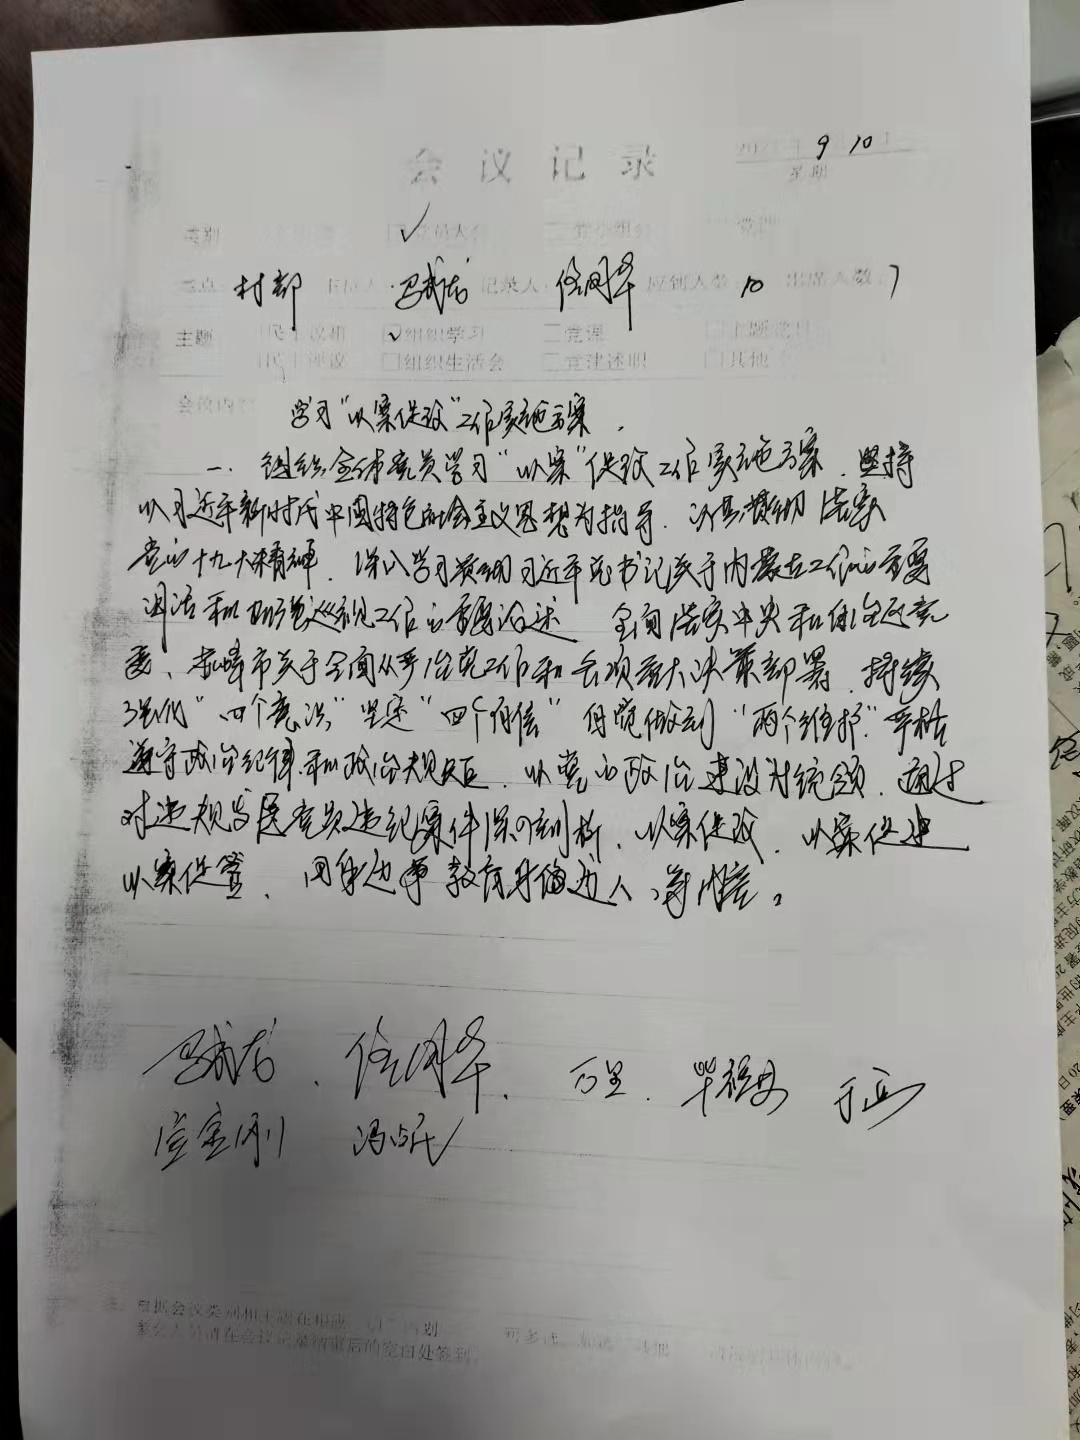 会议记录
9 10
星期
类别 党员大会 党小组会
村部 主持人 马武龙 记录人 任国华 应到人数 10 出席人数 7
主题 组织学习 党课 主题党日
民主评议 组织生活会 党建述职 其他
会议内容
学习“以案促改”工作实施方案.
一、组织全体党员学习“以案”促改工作实施方案.坚持
以习近平新时代中国特色社会主义思想为指导.认真贯彻落实
党的十九大精神.深入学习贯彻习近平总书记关于内蒙古工作的重要
讲话和 巡视工作的重要论述 全面落实中央和自治区党
委、赤峰市关于全面从严治党工作和各项重大决策部署.持续
强化“四个意识”坚定“四个自信”自觉做到“两个维护”严格
遵守政治纪律和政治规矩.以党的政治建设为统领.通过
对违规 党员违纪案件深入剖析.以案促改.以案促建
以案促管.用身边事教育身边人
马武龙.任国华.万里.毕 于
冯占民
根据会议类别和主题在相应
参会人员请在会议记录结束后的空白处签到.